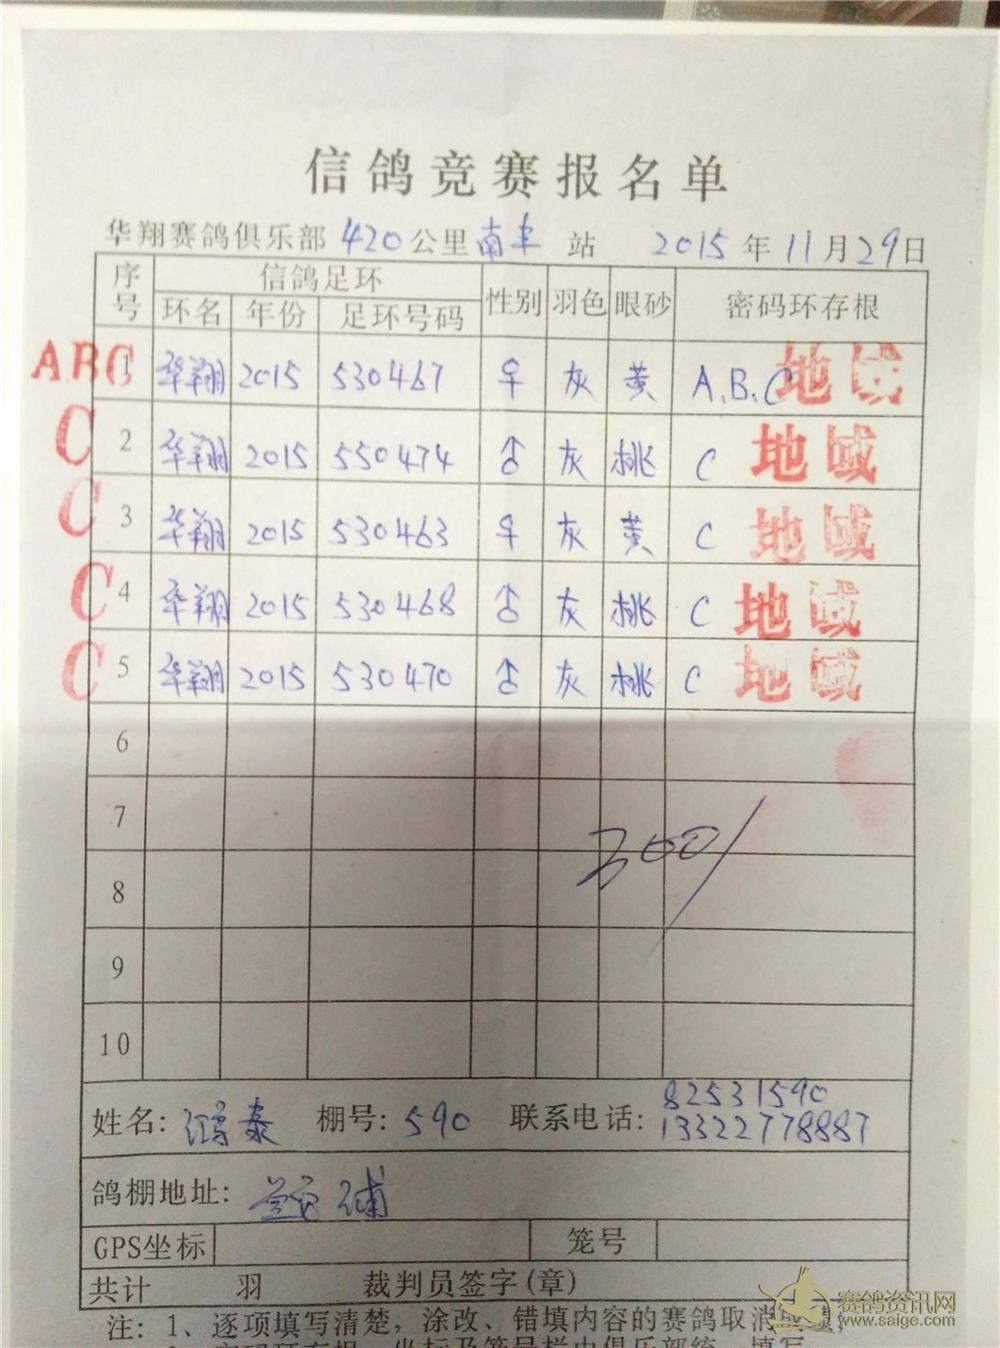 信鸽竞赛报名单
华翔赛鸽俱乐部 420公里南丰 站 2015年11月29日
序号 信鸽足环 性别 羽色 眼砂 密码环存根
环名 年份 足环号码
ABC 1 华翔 2015 530467 ♀ 灰 黄 A.B.C 地域
C 2 华翔 2015 550474 ♂ 灰 桃 C 地域
C 3 华翔 2015 530463 ♀ 灰 黄 C 地域
C 4 华翔 2015 530468 ♂ 灰 桃 C 地域
C 5 华翔 2015 530470 ♂ 灰 桃 C 地域
6
7
300/
8
9
10
姓名: 鸿泰 棚号: 590 联系电话: 82531590
13322778887
鸽棚地址:
GPS坐标 笼号
共计 羽 裁判员签字(章)
注: 1、逐项填写清楚，涂改、错填内容的赛鸽取消成绩;
赛鸽资讯网
www.saige.com